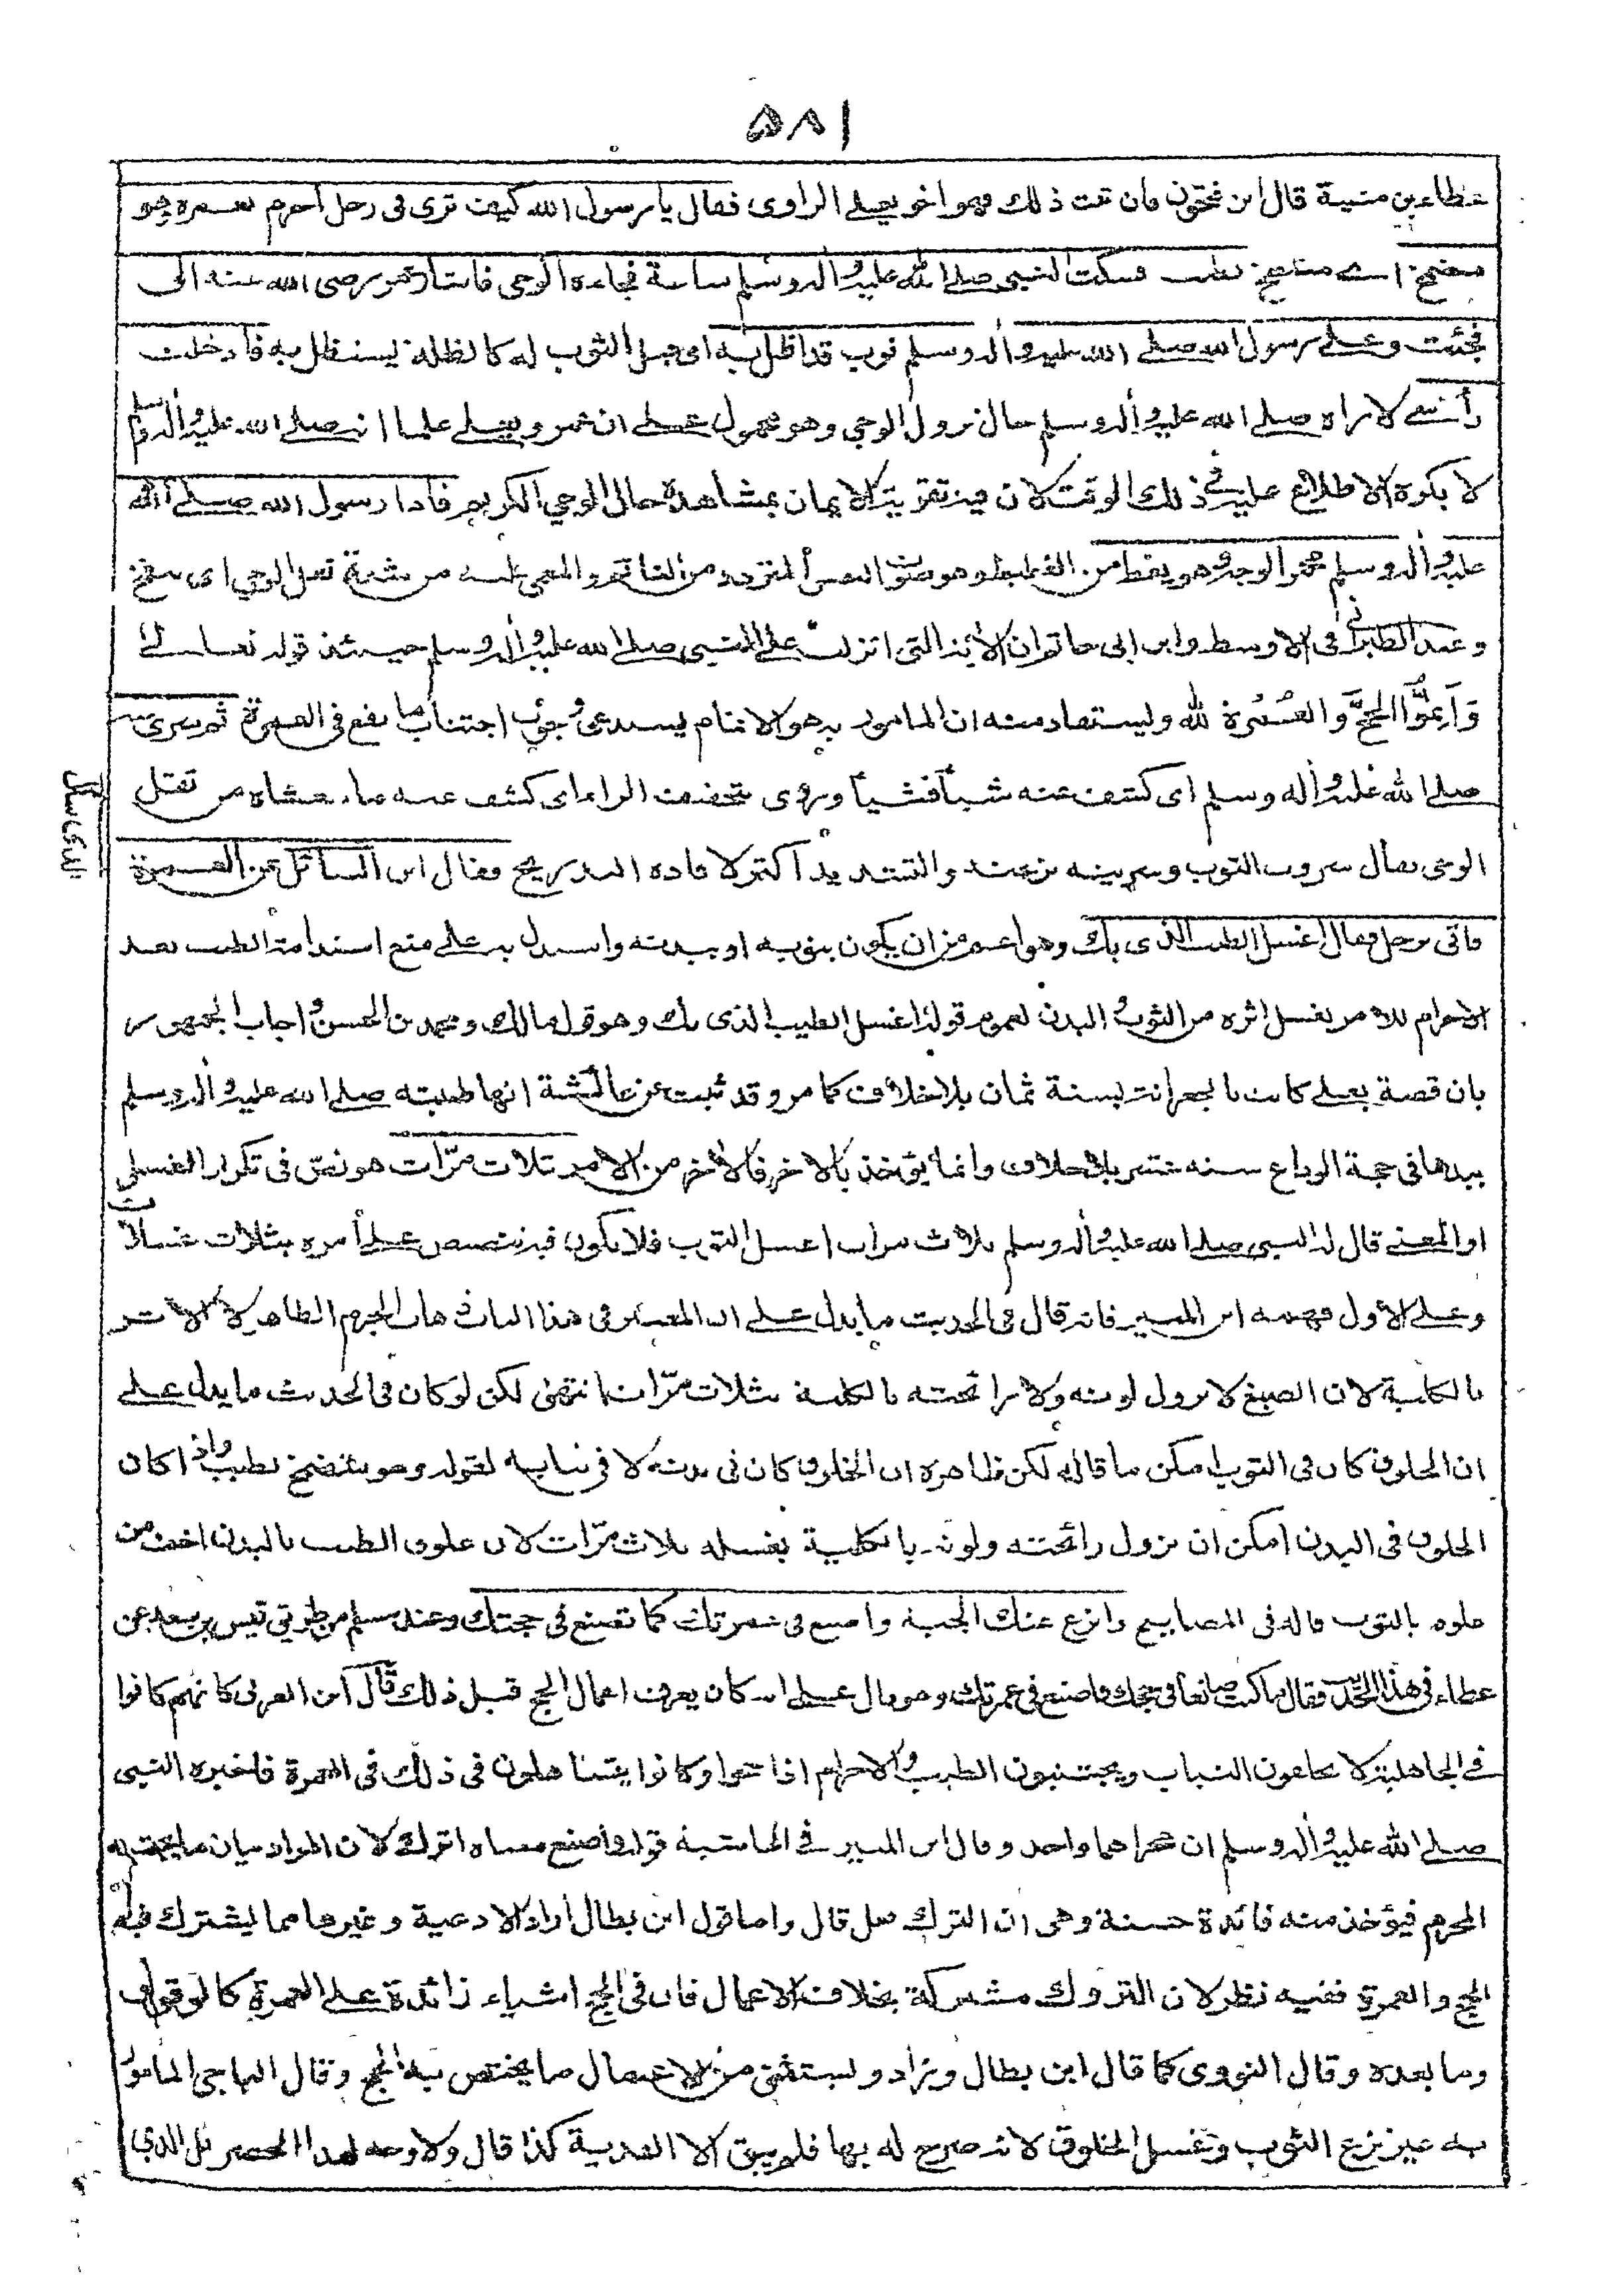 ٥٨١
عطاء بن منية قال ابن فتحون فان ثبت ذلك فهو اخو يعلى الراوى فقال يا رسول الله كيف ترى فى رجل احرم بعمرة وهو
متضمخ اى متلطخ بطيب فسكت النبى صلى الله عليه وآله وسلم ساعة فجاءه الوحى فاشار عمر رضى الله عنه الى
فجئت وعلى رسول الله صلى الله عليه وآله وسلم ثوب قد اظل به اى جعل الثوب له كالظلة يستظل به فادخلت
رأسى لاراه صلى الله عليه وآله وسلم حال نزول الوحى وهو محمول على ان عمر ويعلى علما انه صلى الله عليه وآله وسلم
لا يكره الاطلاع عليه فى ذلك الوقت لان فيه تقوية الايمان بمشاهدة حال الوحى الكريم فاذا رسول الله صلى الله
عليه وآله وسلم محمر الوجه وهو يغط من الغطيط وهو صوت النفس المتردد من النائم والمغمى عليه من شدة ثقل الوحى اى ينفخ
وعند الطبرانى فى الاوسط وابن ابى حاتم ان الآية التى انزلت على النبى صلى الله عليه وآله وسلم حينئذ قوله تعالى
وَأَتِمُّوا الْحَجَّ وَالْعُمْرَةَ لله وليستفاد منه ان المامور به هو الاتمام يستدعى وجوب اجتناب ما يقع فى العمرة ثم سرى
صلى الله عليه وآله وسلم اى كشف عنه شيأ فشيأ وروى بتخفيف الراء اى كشف عنه ما يغشاه من ثقل
الوحى يقال سروت الثوب وسريته نزعته والتشديد اكثر لافادة التدريج فقال اين السائل عن العمرة
الذى سأل
فاتى برجل فقال اغسل الطيب الذى بك وهو اعم من ان يكون بثوبه او ببدنه واستدل به على منع استدامة الطيب بعد
الاحرام للامر بغسل اثره من الثوب والبدن لعموم قوله اغسل الطيب الذى بك وهو قول مالك ومحمد بن الحسن واجاب الجمهور
بان قصة يعلى كانت بالجعرانة بسنة ثمان بلا خلاف كما مر وقد ثبت عن عائشة انها طيبته صلى الله عليه وآله وسلم
بيدها فى حجة الوداع سنة عشر بلا خلاف وانما يؤخذ بالآخر فالآخر من الامر ثلاث مرّات هو نص فى تكرار الغسل
او المعنى قال له النبى صلى الله عليه وآله وسلم ثلاث مرات اغسل الثوب فلا يكون فيه تنصيص على امره بثلاث غسلات
وعلى الاول فهمه ابن المنير فانه قال فى الحديث ما يدل على ان المعتبر فى هذا الباب ذهاب الجرم الظاهر لا الاثر
بالكلية لان الصبغ لا يزول لونه ولا رائحته بالكلية بثلاث مرّات انتهى لكن لو كان فى الحديث ما يدل على
ان الخلوق كان فى الثوب امكن ما قاله لكن ظاهره ان الخلوق كان فى بدنه لا فى ثيابه لقوله وهو متضمخ بطيب واذا كان
الخلوق فى البدن امكن ان تزول رائحته ولونه بالكلية بغسله ثلاث مرّات لان علوق الطيب بالبدن اخف من
علوقه بالثوب قاله فى المصابيح وانزع عنك الجبة واصنع فى عمرتك كما تصنع فى حجتك وعند مسلم من طريق قيس بن سعد عن
عطاء فى هذا الحديث فقال ما كنت صانعا فى حجك فاصنع فى عمرتك وهو دال على انه كان يعرف اعمال الحج قبل ذلك قال ابن العربى كانهم كانوا
فى الجاهلية لا يخلعون الثياب ويجتنبون الطيب فى الاحرام اذا حجوا وكانوا يتساهلون فى ذلك فى العمرة فاخبره النبى
صلى الله عليه وآله وسلم ان مجراهما واحد وقال ابن المنير فى الحاشية قوله واصنع معناه اترك لان المراد بيان ما يجتنبه
المحرم فيؤخذ منه فائدة حسنة وهى ان الترك فعل قال واما قول ابن بطال اراد الادعية وغيرها مما يشترك فيه
الحج والعمرة ففيه نظر لان التروك مشتركة بخلاف الاعمال فان فى الحج اشياء زائدة على العمرة كالوقوف
وما بعده وقال النووى كما قال ابن بطال وزاد ويستثنى من الاعمال ما يختص به الحج وقال الباجى المامور
به غير نزع الثوب وغسل الخلوق لانه صرح له بها فلم يبق الا الفدية كذا قال ولا وجه لهذا الحصر بل الذى